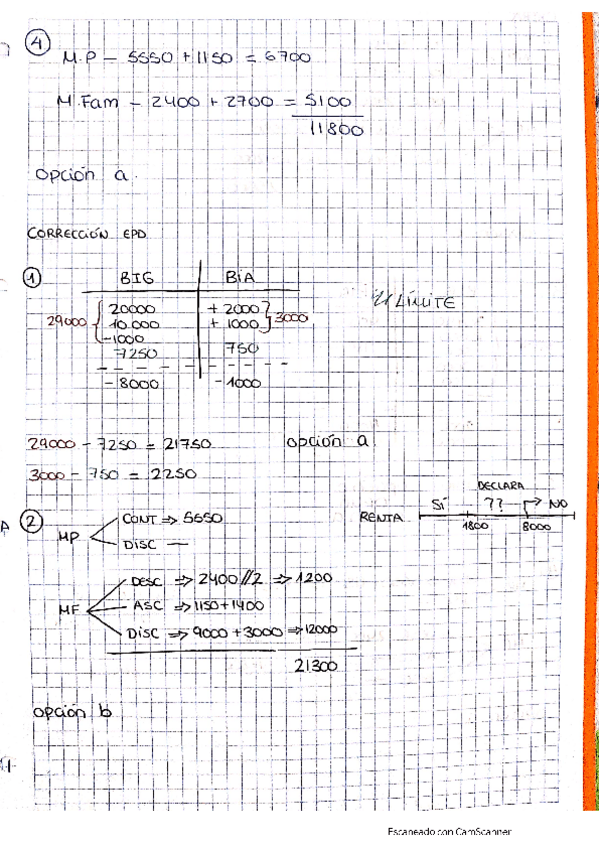 4
M.P – 5550 + 1150 = 6700
M.Fam – 2400 + 2700 = 5100
11800
opción a.
CORRECCIÓN EPD
1
BIG BIA
20000 + 2000
29000 10.000 + 1000 3000
LÍMITE
-1000
7250 750
- 8000 - 1000
29000 – 7250 = 21750 opción a
3000 – 750 = 2250
2
MP
CONT ⇒ 5550
DISC —
DECLARA
RENTA SÍ ?? NO
1800 8000
MF
DESC ⇒ 2400//2 ⇒ 1200
ASC ⇒ 1150+1400
DISC ⇒ 9000 + 3000 ⇒ 12000
21300
opción b
Escaneado con CamScanner